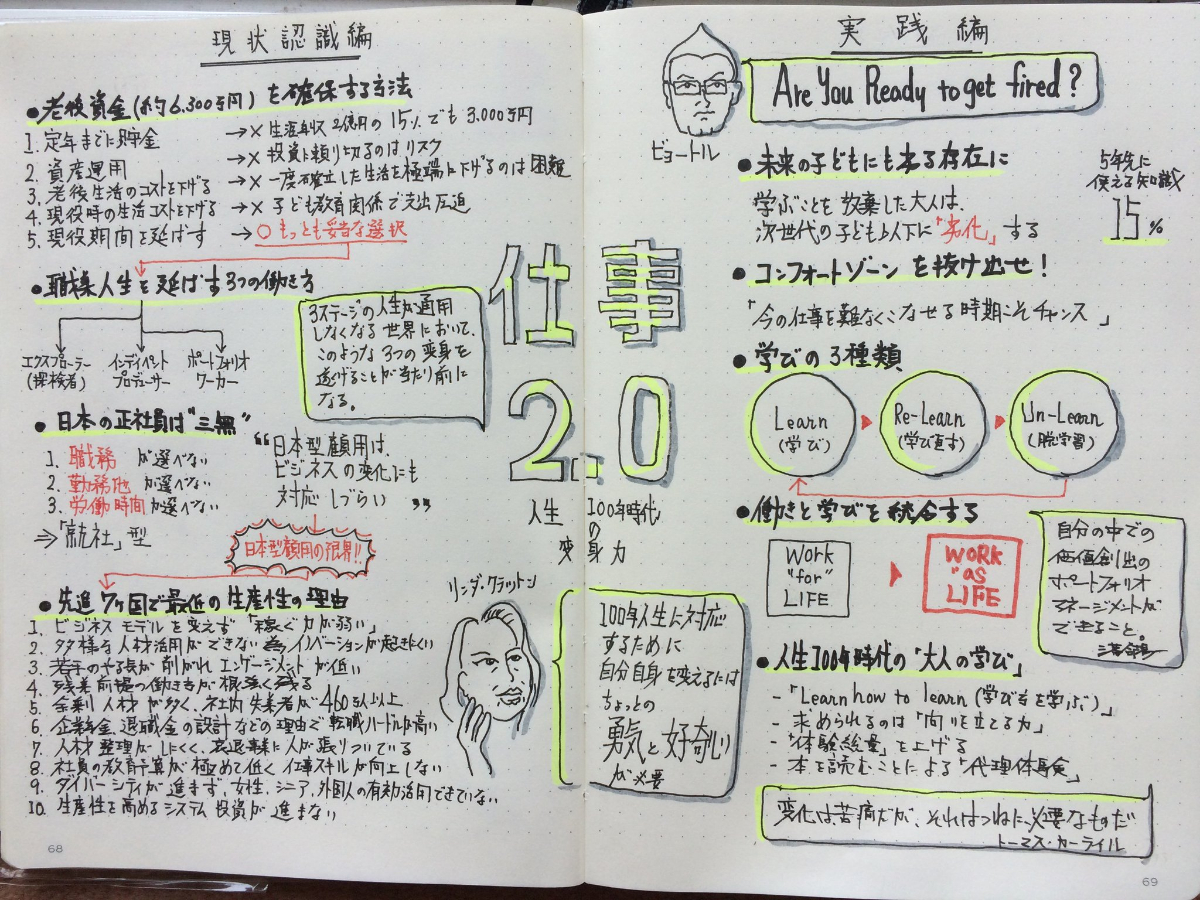 現状認識編
●老後資金(約6,300万円)を確保する方法
1. 定年までに貯金 →× 生涯年収2億円の15%でも3,000万円
2. 資産運用 →× 投資に頼り切るのはリスク
3. 老後生活のコストを下げる →× 一度確立した生活を極端に下げるのは困難
4. 現役時の生活コストを下げる →× 子ども教育関係で支出圧迫
5. 現役期間を延ばす →○もっとも妥当な選択
●職業人生を延ばす3つの働き方
エクスプローラー
(探検者)
インディペンデント
プロデューサー
ポートフォリオ
ワーカー
3ステージの人生が通用
しなくなる世界において、
このような3つの変身を
遂げることが当たり前に
なる。
●日本の正社員は"三無"
1. 職務が選べない
2. 勤務地が選べない
3. 労働時間が選べない
⇒「就社」型
“日本型雇用は、
ビジネスの変化にも
対応しづらい”
日本型雇用の限界!!
●先進7ヶ国で最低の生産性の理由
1. ビジネスモデルを変えず「稼ぐ力が弱い」
2. 多様な人材活用ができない為イノベーションが起きにくい
3. 若手のやる気が削がれエンゲージメントが低い
4. 残業前提の働き方が根強く残る
5. 余剰人材が多く、社内失業者が460万人以上
6. 企業年金、退職金の設計などの理由で転職ハードルが高い
7. 人材整理がしにくく、衰退事業に人が張りついている
8. 社員の教育予算が極めて低く仕事スキルが向上しない
9. ダイバーシティが進まず、女性、シニア、外国人の有効活用できていない
10. 生産性を高めるシステム投資が進まない
68
仕事
2.0
人生100年時代
の
変身力
リンダ・グラットン
100年人生に対応
するために
自分自身を変えるには
ちょっとの
勇気と好奇心
が必要
実践編
Are You Ready to get fired?
ピョートル
●未来の子どもにも劣る存在に
学ぶことを放棄した大人は、
次世代の子ども以下に「劣化」する
5年先に
使える知識
15%
●コンフォートゾーンを抜け出せ!
「今の仕事を難なくこなせる時期こそチャンス」
●学びの3種類
Learn
(学び)
Re-Learn
(学び直す)
Un-Learn
(脱学習)
●働きと学びを統合する
Work
"for"
LIFE
WORK
"as
LIFE
自分の中での
価値創出の
ポートフォリオ
マネージメントが
できること。
落合陽一
●人生100年時代の「大人の学び」
-「Learn how to learn(学び方を学ぶ)」
- 求められるのは「問いを立てる力」
-「体験総量」を上げる
- 本を読むことによる「代理体験」
変化は苦痛だが、それはつねに必要なものだ
トーマス・カーライル
69